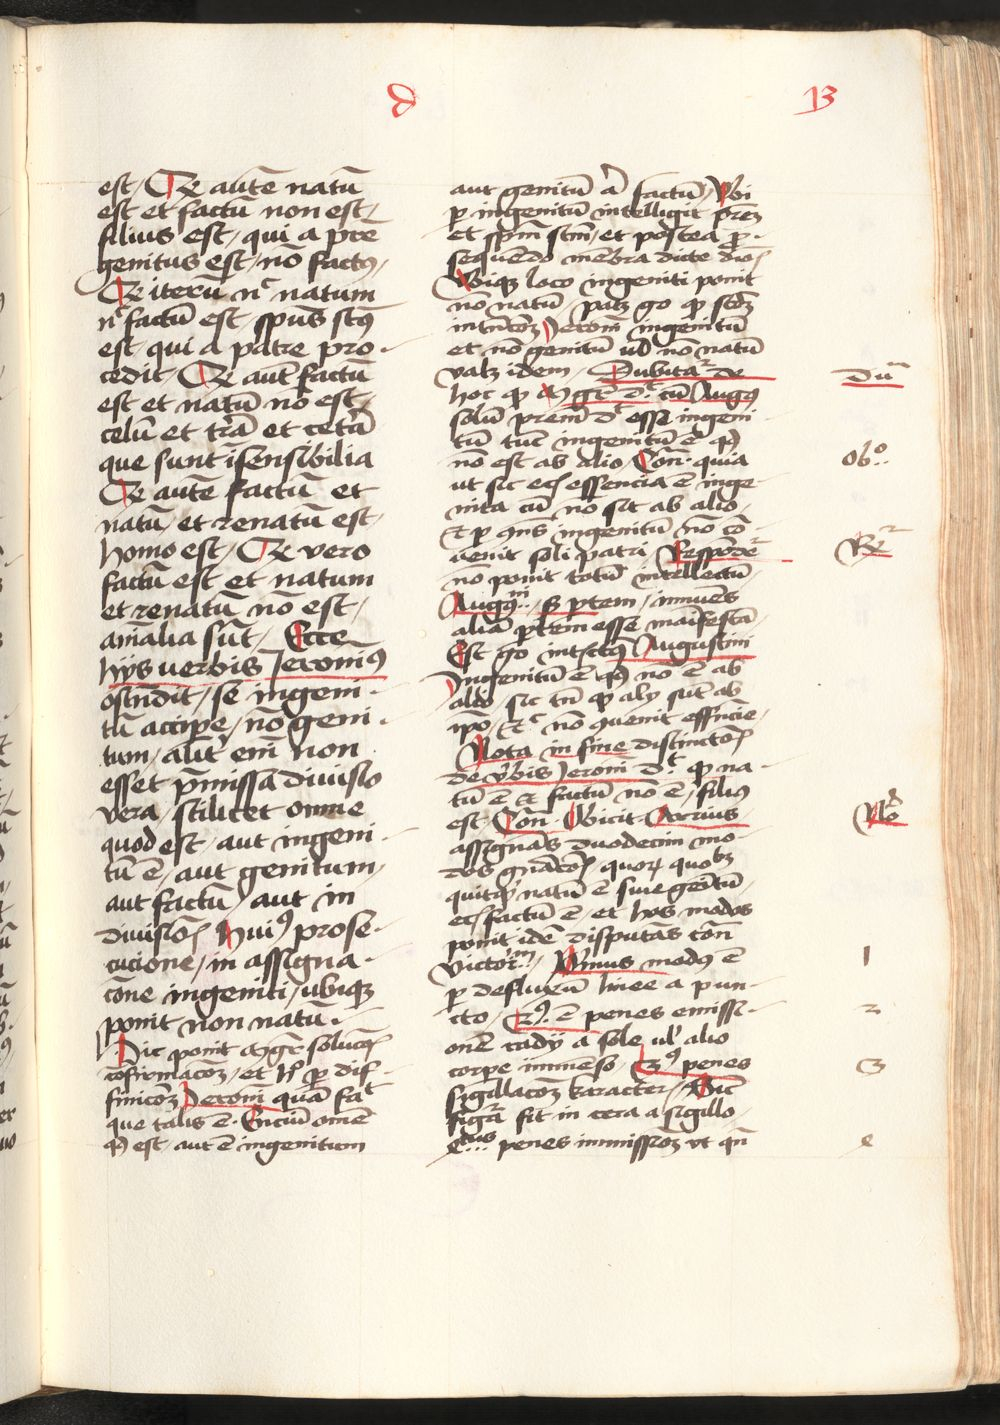 d
13
est / Qd aute natū
est et factū non est /
filius est / qui a pre
genitus est / nō factus /
Qd iterū nc natum
nc factū est / spūs stūs
est / qui a patre pro-
cedit / Qd aut factū
est et natū nō est /
celū et trā et cetera
que sunt īsensibilia
Qd autē factū et
natū et renatū est /
homo est / Qd vero
factū est et natum
et renatū nō est /
amalia sūt / Ecce
hijs verbis Jeronimus
ostndit / se ingeni-
tū accipe / nō geni-
tum / alit enī non
esset pmissa divisio
vera / scilicet omne
quod est / aut ingeni-
tū ē / aut genitum /
aut factū / aut in
divisiōe hui9 prose-
cucione / in assigna-
cōne ingeniti / ubique
ponit non natū .
Hic ponit mgr solucōis
cōfirmacōem / et hoc p dif-
finicōem Jeronī quā fat
que talis ē . Enciū omē
qd est / aut ē ingenitum
aut genitū aut factū / Ubi
p ingenitū intelligit prem
et spm stm / et postea p-
sequendo mebra dicte diois
Ubique loco ingeniti ponit
no natū / patz go qp scdm
intncōem Jeronī ingenitū
et nō genitū ul nō natū
valz idem / Dubitar de
hoc qp mgr dct cū Augus
solū prem dct esse ingeni
tū tuc ingenitū ē qd
nō est ab alio / Con quia
ut sic eciam essencia ē inge-
nita cū no sit ab alio /
Et p ons ingenitū nō cō-
uenit soli patri / Respōdetur
nō ponit totū intellectū
Augusni / s ptem / innuens
aliā ptem esse manifestā
Est go intctus Augustini
Ingenitū ē qd nō ē ab
alio / sic tn qp alij sūt ab
ipo / Etc nō quenit essencie /
Nota in fine distinctōis
de vbis Jeronī dct qp na-
tū ē et factū nō ē / filius
est / Con . Obicit Arrius
assignās duodecim mo-
dos gnacōis / quorum quobz
quitquid natū ē siue genitū
eciam factū ē / et hos modos
ponit idē disputās cōn
victorem / Primus modus ē
p defluxū linee a pun-
cto / 2us ē penes emissi-
onē radij a sole ul alio
corpe immeso / 3us penes
sygillacōem karacter / Sic
figura fit in cera a sigillo /
4tus penes immissiōem vt qn
Dum
obo
Rr
No
1
2
3
4